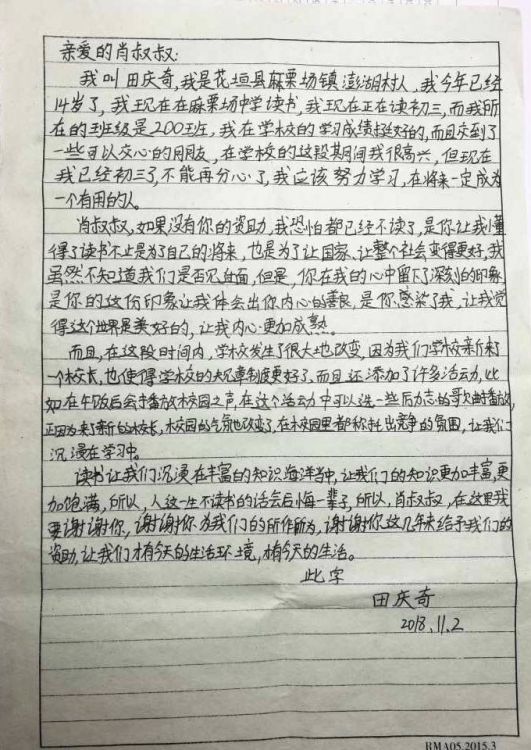 亲爱的肖叔叔:
我叫田庆奇,我是花垣县麻栗场镇澎湖村人,我今年已经
14岁了,我现在在麻栗场中学读书,我现在正在读初三,而我所
在的班级是200班,我在学校的学习成绩挺好的,而且交到了
一些可以交心的朋友,在学校的这段其间我很高兴,但现在
我已经初三了,不能再分心了,我应该努力学习,在将来一定成为
一个有用的人。
肖叔叔,如果没有你的资助,我恐怕都已经不读了,是你让我懂
得了读书不止是为了自己的将来,也是为了让国家、让整个社会变得更好,我
虽然不知道我们是否见过面,但是,你在我的心中留下了深刻的印象
是你的这份印象让我体会出你内心的善良,是你感染了我,让我觉
得这个世界是美好的,让我内心更加成熟。
而且,在这段时间内,学校发生了很大地改变,因为我们学校来了
一个校长,也使得学校的规章制度更好了,而且还添加了许多活动,比
如在午饭后会播放校园之声,在这个活动中可以选一些励志的歌曲播放,
正因为来了新的校长,校园的气氛也改变了,在校园里都衬托出竞争的氛围,让我们
沉浸在学习中。
读书让我们沉浸在丰富的知识海洋当中,让我们的知识更加丰富,更
加饱满,所以,人这一生不读书的话会后悔一辈子,所以,肖叔叔,在这里我
要谢谢你,谢谢你为我们的所作所为,谢谢你这几年来给予我们的
资助,让我们才有今天的生活环境,才有今天的生活。
此字
田庆奇
2018.11.2
RMA05.2015.3